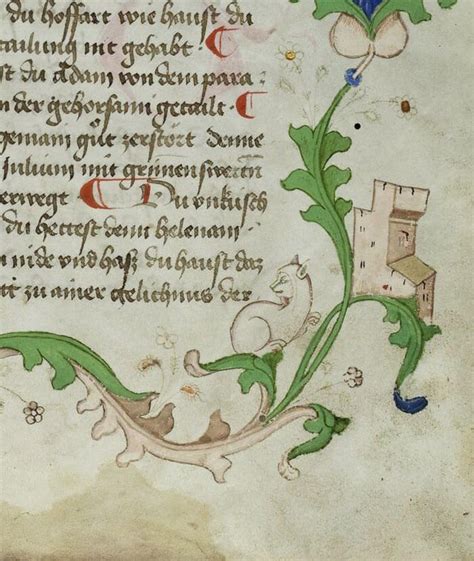 du hoffart wie haust du
tailung nit gehabt · ¶
st du Adam von dem para
n der gehorsam getailt · ¶
gemain gůt zerstört denne
Julium mit
erwegt ¶ Du vnküsch
du hettest denn helenam
n nide vnd hasz du haust daz
tt zu ainer gelichnus der